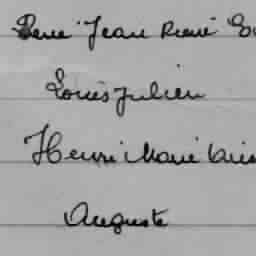 René Jean René
Louis Julien
Henri Marie
Auguste